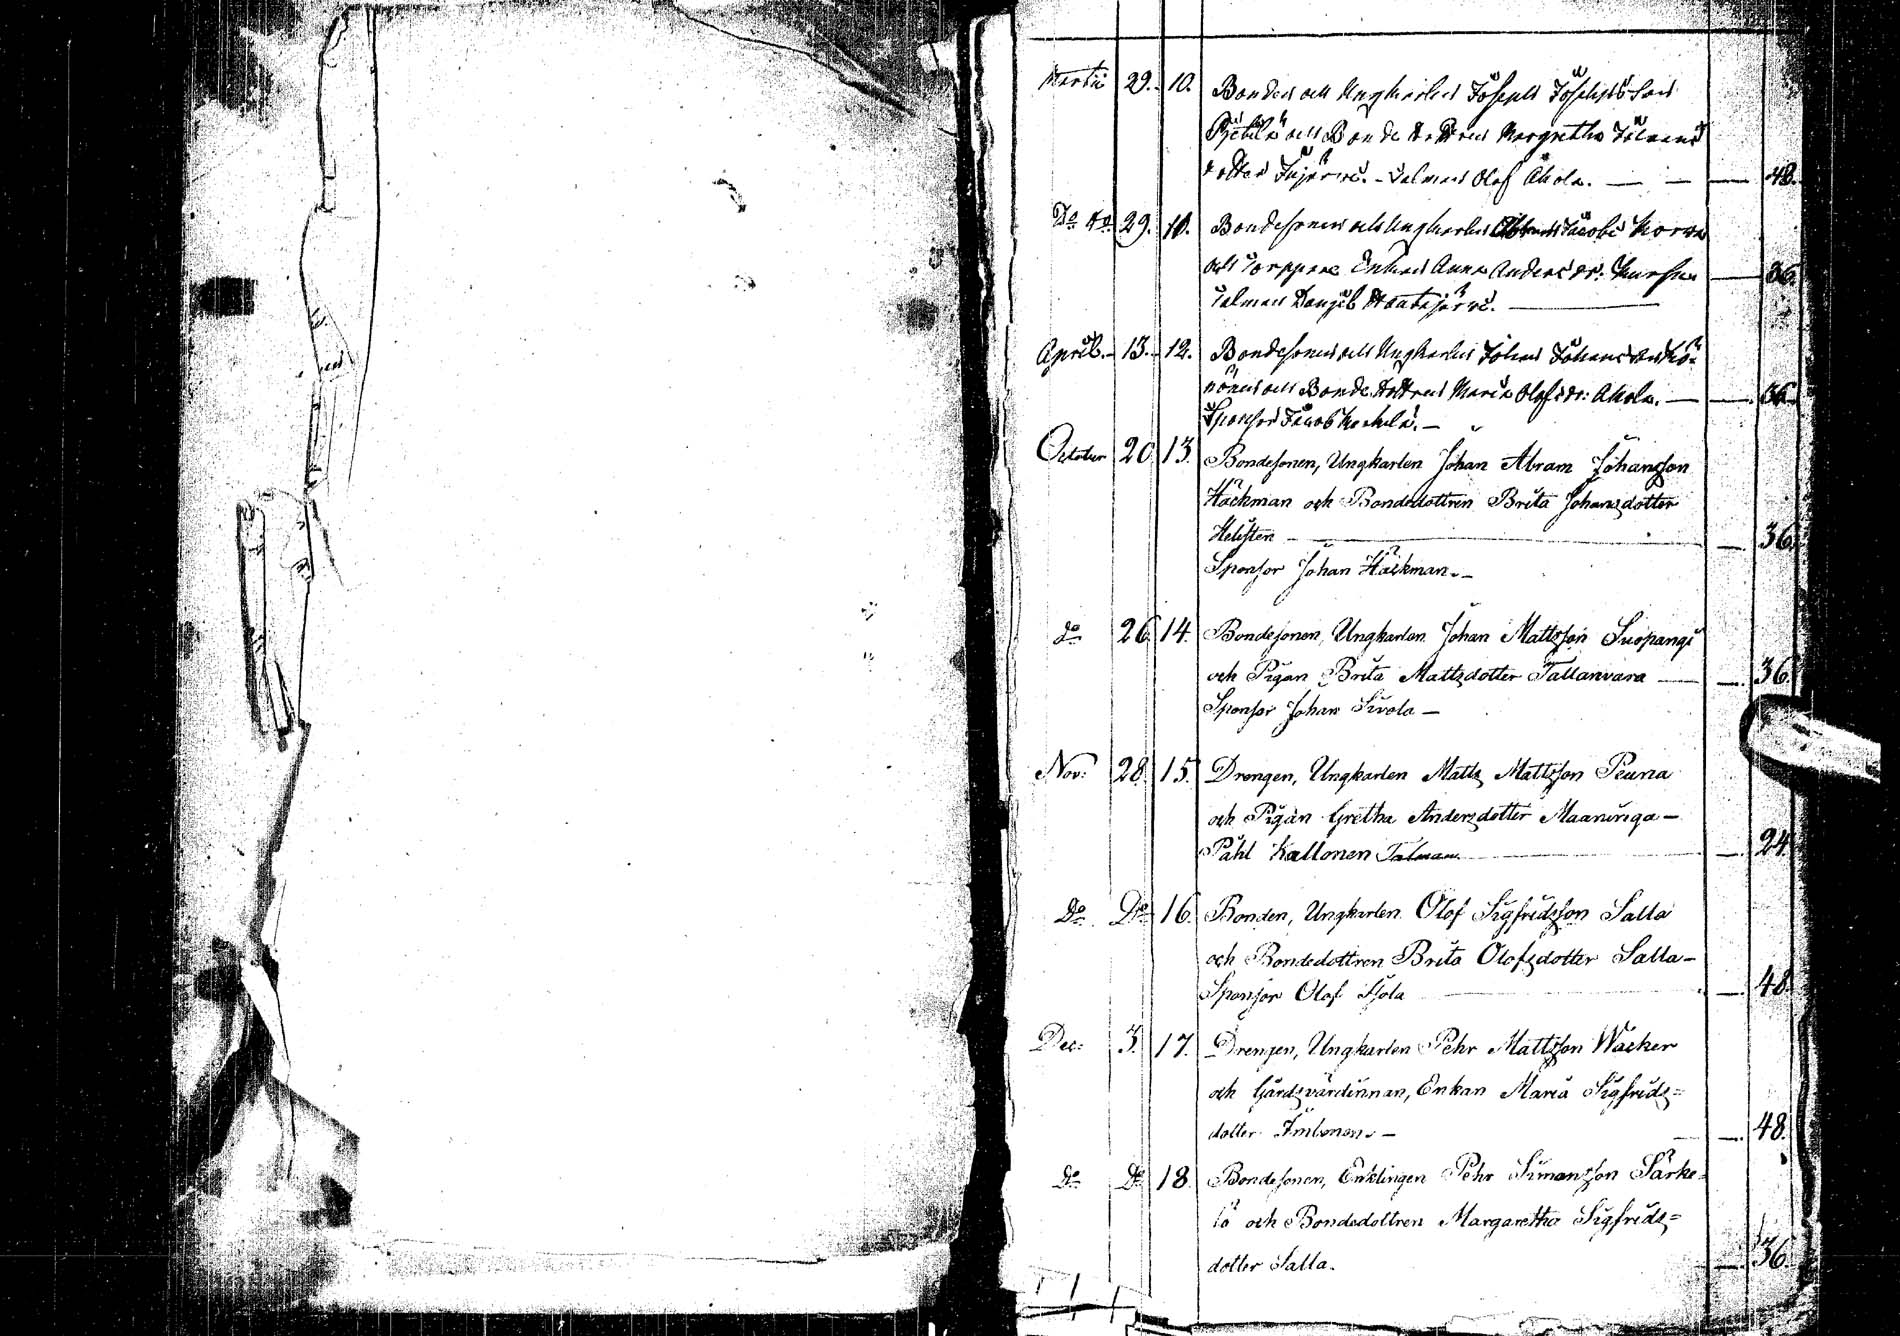 Martii 29. 10. Bonden och Ungkarlen Joseph Josephsson
och Bonde Dottren Margretha
dotter Kujärwi. – Talman Olof Ahola. — 48.
Do do 29. 11. Bondesonen och Ungkarlen Jacobs Korva
och Torppare Enkan Anna Anders dr: Kursu — 36.
Talman
April. 13. 12. Bondesonen och Ungkarlen Johan Johansson Kö-
nönen och Bonde Dottren Maria Olofsdr: Ahola. — 36.
Sponsor Jacob
October 20 13. Bondesonen, Ungkarlen Johan Abram Johansson
Häckman och Bondedottren Brita Johansdotter
Helisten — 36.
Sponsor Johan Häckman. –
do 26. 14. Bondesonen, Ungkarlen Johan Mattsson Suopangi
och Pigan Brita Mattsdotter Tallanvara — 36.
Sponsor Johan Sivola –
Nov: 28. 15. Drengen, Ungkarlen Matts Mattsson Peuna
och Pigan Gretha Andersdotter Maaninga –
Påhl Kallonen Talman — 24.
Do Do 16. Bonden, Ungkarlen Olof Sigfridsson Salla
och Bondedottren Brita Olofsdotter Salla –
Sponsor Olof — 48.
Dec: 3. 17. Drengen, Ungkarlen Pehr Mattsson Wäcker
och Gårdsvärdinnan, Enkan Maria Sigfrids=
dotter — 48.
Do Do 18. Bondesonen, Enklingen Pehr Simonsson Särke=
lä och Bondedottren Margaretha Sigfrids=
dotter Salla. — 36.